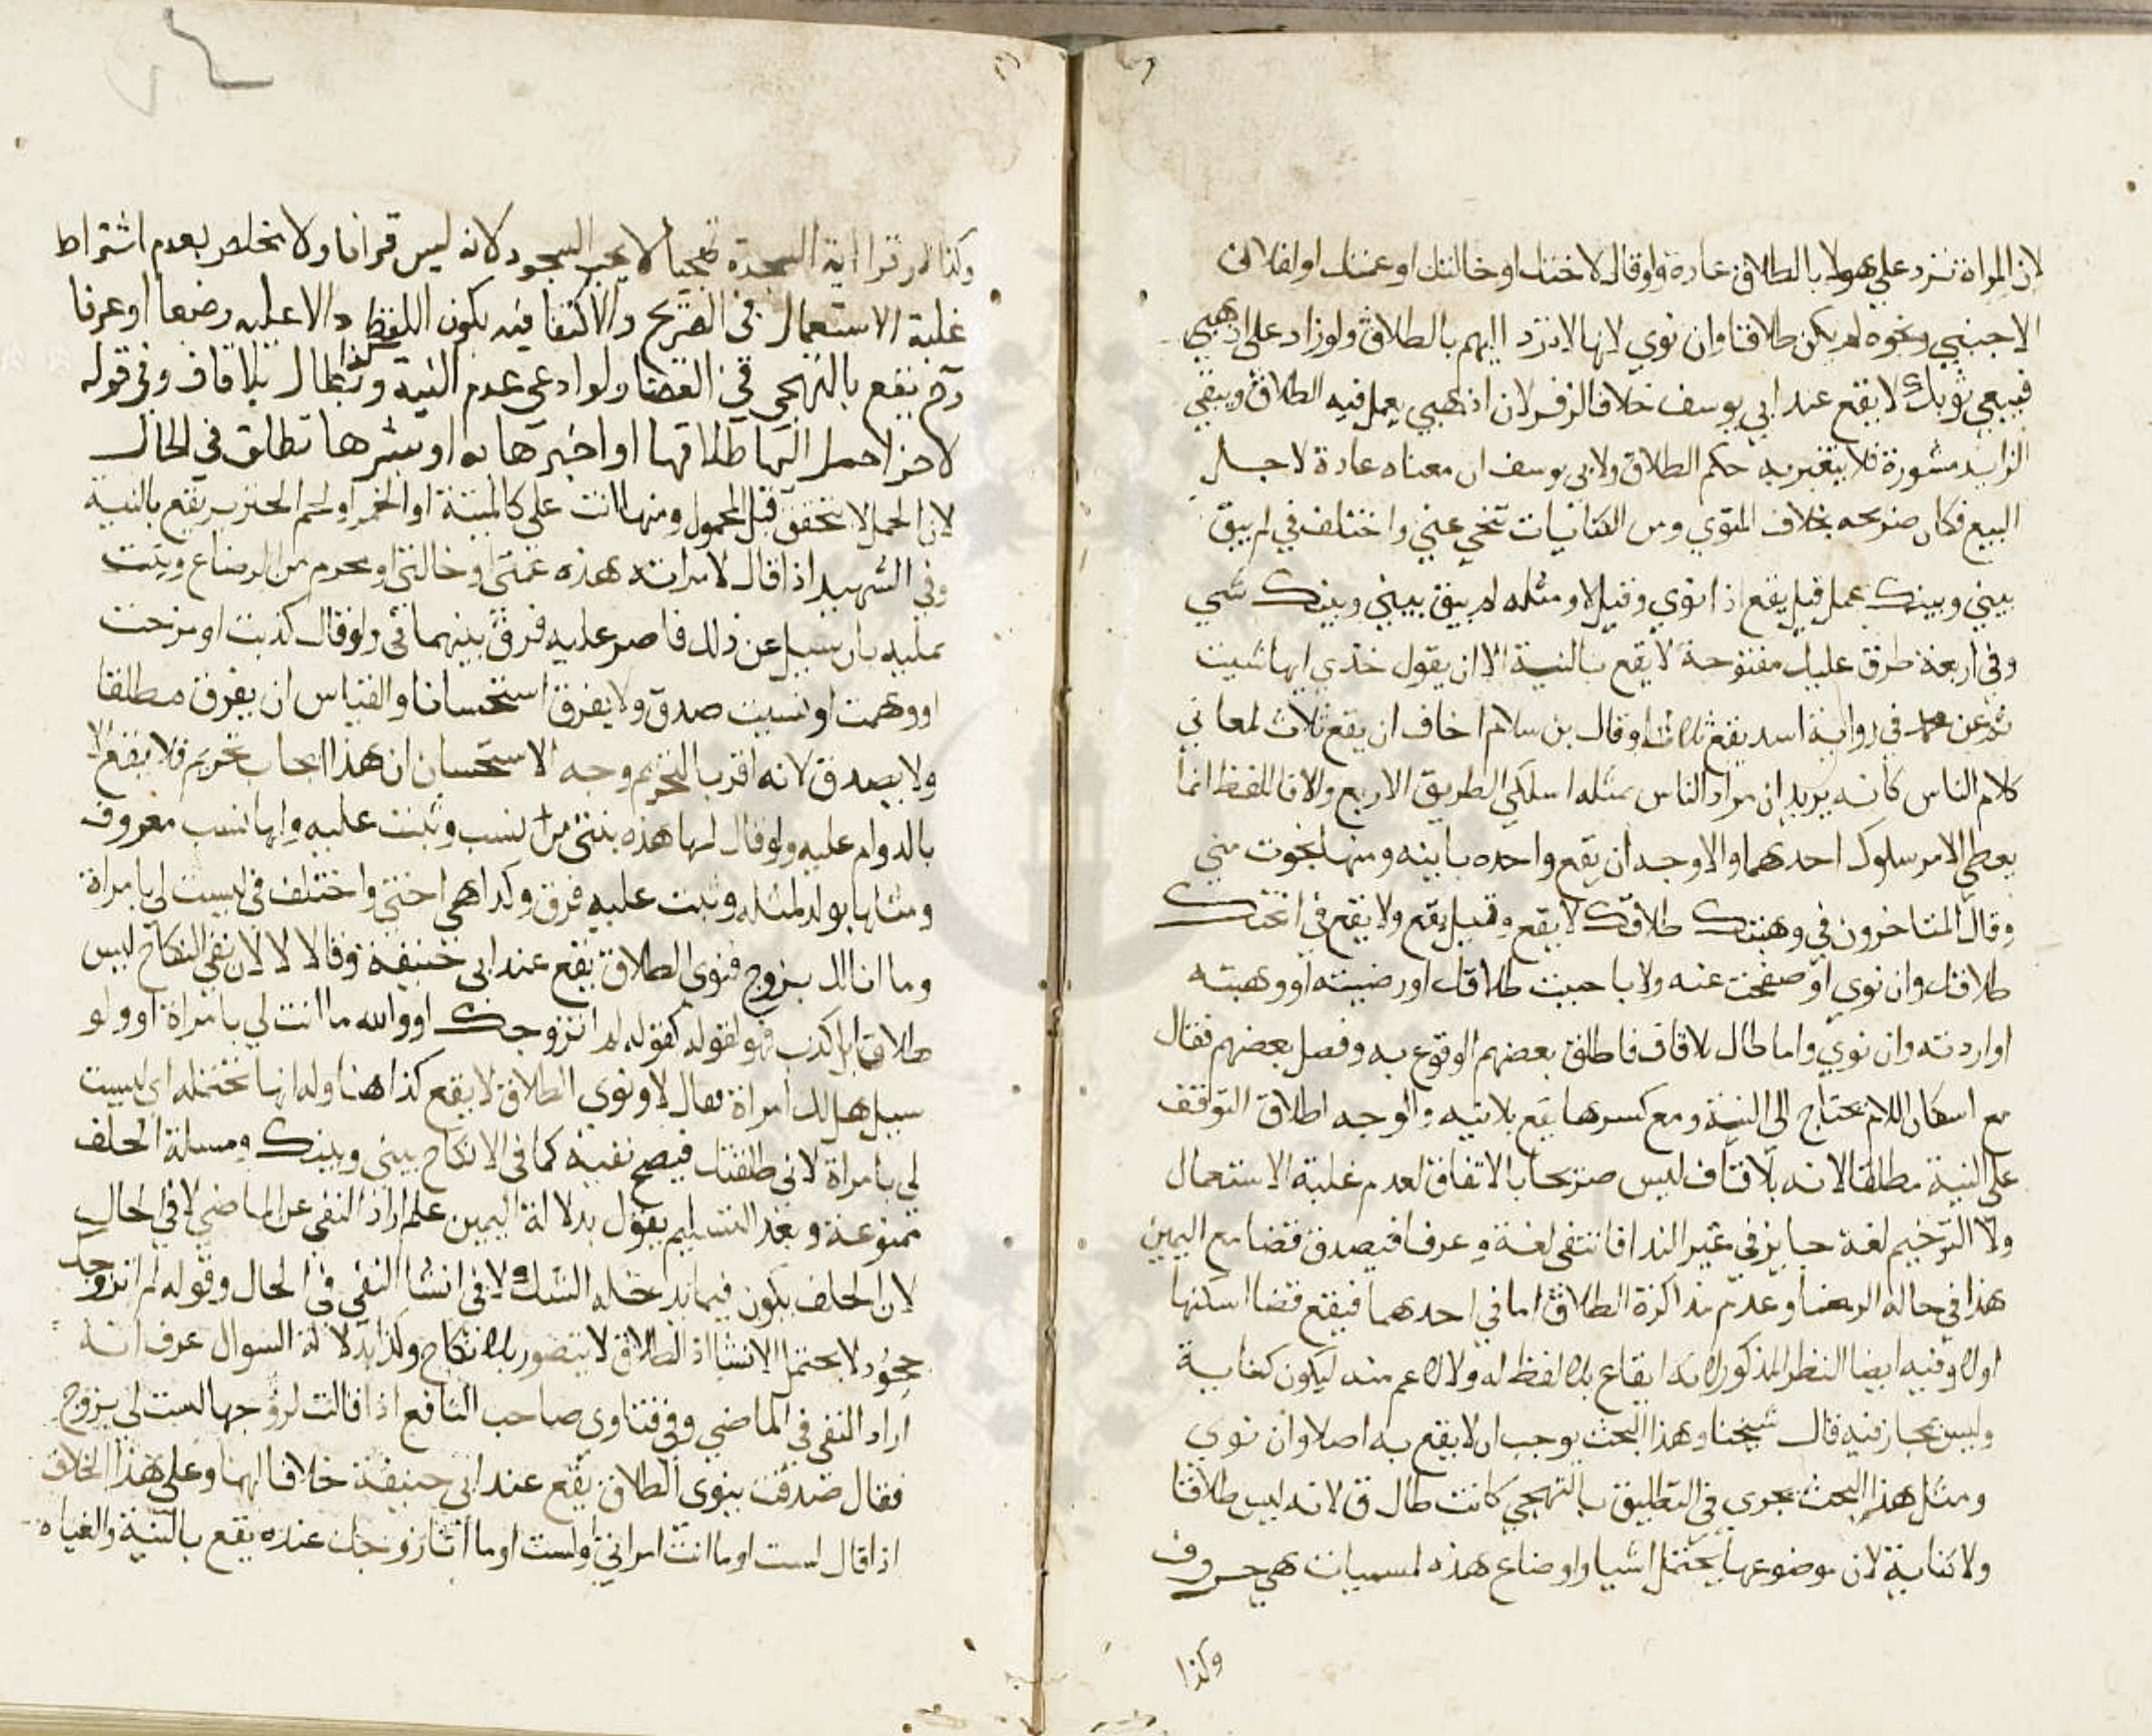 لان المراة ترد على هولا بالطلاق عادة ولو قال لاختك او خالتك او عمتك او لفلان
الاجنبي ونحوه لم يكن طلاقا وان نوي لانها لا ترد اليهم بالطلاق ولو زاد على اذهبي
فبيعي ثوبك لا يقع عند ابي يوسف خلافا لزفر لان اذهبي يعمل فيه الطلاق ويبقي
الزايد مشورة فلا يتغير به حكم الطلاق ولابي يوسف ان معناه عادة لاجل
البيع فكان صريحه بخلاف المنوي ومن الكنايات تنحي عني واختلف في لم يبق
بيني وبينك عمل قيل يقع اذا نوي وقيل لا ومثله لم يبق بيني وبينك شي
وفي اربعة طرق عليك مفتوحة لا يقع بالنية الا ان يقول خذي ايها شيت
ثم عن محمد في رواية اسد يقع ثلاث وقال بن سلام اخاف ان يقع ثلاث لمعاني
كلام الناس كانه يريد ان مراد الناس بمثله اسلكي الطريق الاربع والا فاللفظ انما
يعطي الامر سلوك احدهما والاوجه ان يقع واحده باينه ومنها نجوت مني
وقال المتاخرون في وهبتك طلاقك لا يقع وقيل يقع ولا يقع في ابحتك
طلاقك وان نوي او صفحت عنه ولا باحببت طلاقك او رضيته او وهبته
او اردته وان نوي واما طال بلا قاف فاطلق بعضهم الوقوع به وفصل بعضهم فقال
مع اسكان اللام يحتاج الى النية ومع كسرها يقع بلا نيه والوجه اطلاق التوقف
على النية مطلقا لانه بلا قاف ليس صريحا بالاتفاق لعدم غلبة الاستعمال
ولا الترخيم لغة جايز في غير الندا فانتفى لغة وعرفا فيصدق قضا مع اليمين
هذا في حالة الرضا وعدم مذاكرة الطلاق اما في احدهما فيقع قضا اسكنها
اولا وفيه ايضا النظر المذكور لانه ايقاع بلا لفظ له ولا لاعم منه ليكون كناية
وليس بمجاز فيه قال شيخنا وهذا البحث يوجب ان لا يقع به اصلا وان نوي
ومثل هذا البحث يجري في التطليق بالتهجي كانت طال ق لانه ليس طلاقا
ولا كناية لان موضوعها يحتمل اشيا واوضاع هذه لمسميات هي حروف
وكذا
وكذا لو قرا اية السجدة تهجيا لا يجب السجود لانه ليس قرانا ولا تخلص بعدم اشتراط
غلبة الاستعمال في الصريح والاكتفا فيه بكون اللفظ دالا عليه وضعا او عرفا
وح يقع بالتهجي في القضا ولو ادعى عدم النية وكذا بطال بلا قاف وفي قوله
لاخر احمل اليها طلاقها او اخبرها به او بشرها تطلق في الحال
لان الحمل لا يتحقق قبل المحمول ومنها انت علي كالميتة او الخمر او لحم الخنزير يقع بالنية
وفي الشهيد اذا قال لامراته هذه عمتي او خالتي او محرم من الرضاع ويثبت
عليه بان سيل عن ذلك فاصر عليه فرق بينهما ولو قال كذبت او مزحت
او وهمت او نسيت صدق ولا يفرق استحسانا والقياس ان يفرق مطلقا
ولا يصدق لانه اقر بالتحريم وجه الاستحسان ان هذا ايجاب تحريم فلا يقع الا
بالدوام عليه ولو قال لها هذه بنتي من نسب وثبت عليه ولها نسب معروف
ومثلها يولد لمثله وثبت عليه فرق وكذا هي اختي واختلف في ليست لي بامراة
وما انا لك بزوج فنوى الطلاق يقع عند ابي حنيفة وقالا لا لان نفي النكاح ليس
طلاقا بل كذب فهو لقوله كقوله لم اتزوجك او والله ما انت لي بامراة او ولو
سيل هل لك امراة فقال لا ونوى الطلاق لا يقع كذا هنا وله انها تحتمله اي ليست
لي بامراة لاني طلقتك فيصح نفيه كما في لا نكاح بيني وبينك ومسلة الحلف
ممنوعة وبعد التسليم يقول بدلالة اليمين علم اراد النفي عن الماضي لا في الحال
لان الحلف يكون فيما يدخله الشك ولا في انشا النفي في الحال وقوله لم اتزوجك
جحود لا يحتمل الانشا اذ الطلاق لا يتصور بلا نكاح وكذا بدلالة السوال عرف انه
اراد النفي في الماضي وفي فتاوى صاحب النافع اذا قالت لزوجها لست لي بزوج
فقال صدقت ينوى الطلاق يقع عند ابي حنيفة خلافا لهما وعلى هذا الخلاف
اذا قال لست او ما انت امراتي او لست او ما انا زوجك عنده يقع بالنية والغياه